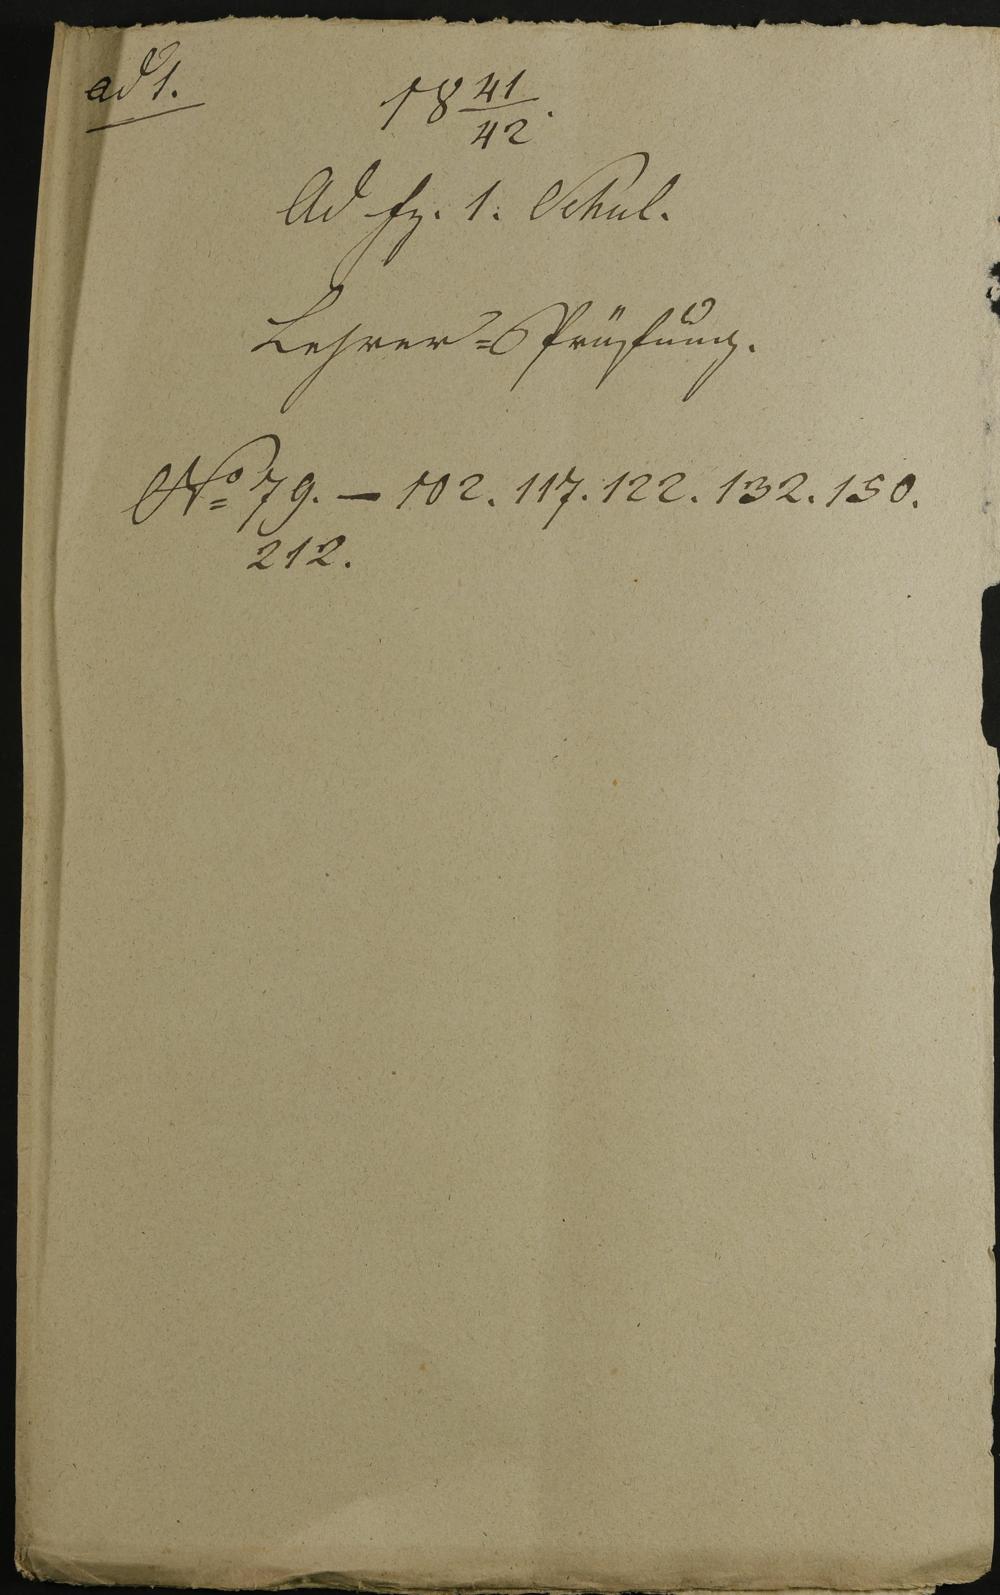 ad 1.
18 41/42.
Ad fz. 1. Schul.
Lehrer=Prüfung.
No 79. — 102. 117. 122. 132. 150.
212.